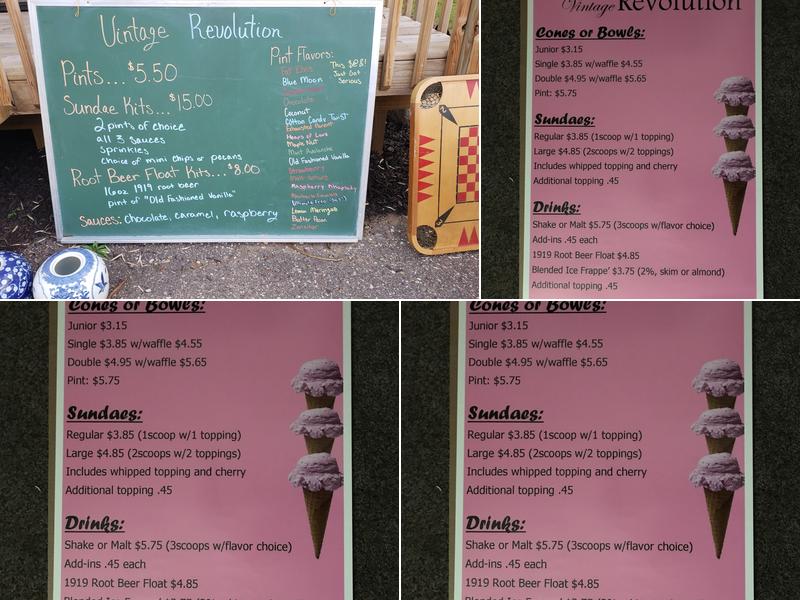 Vintage Revolution
Pints... $5.50
Sundae Kits... $15.00
2 pints of choice
all 3 sauces
sprinkles
choice of mini chips or pecans
Root Beer Float Kits... $8.00
16oz 1919 root beer
pint of "Old Fashioned Vanilla"
Sauces: chocolate, caramel, raspberry
Pint Flavors:
This $@&!
Just Got
Serious
Blue Moon
Chocolate
Coconut
Cotton Candy Twist
Exhausted Parent
Heaps of Love
Maple Nut
Mint Avalanche
Old Fashioned Vanilla
Strawberry
Raspberry Rhapsody
Lemon Meringue
Butter Pecan
Zanzibar
Vintage Revolution
Cones or Bowls:
Junior $3.15
Single $3.85 w/waffle $4.55
Double $4.95 w/waffle $5.65
Pint: $5.75
Sundaes:
Regular $3.85 (1scoop w/1 topping)
Large $4.85 (2scoops w/2 toppings)
Includes whipped topping and cherry
Additional topping .45
Drinks:
Shake or Malt $5.75 (3scoops w/flavor choice)
Add-ins .45 each
1919 Root Beer Float $4.85
Blended Ice Frappe' $3.75 (2%, skim or almond)
Additional topping .45
Cones or Bowls:
Junior $3.15
Single $3.85 w/waffle $4.55
Double $4.95 w/waffle $5.65
Pint: $5.75
Sundaes:
Regular $3.85 (1scoop w/1 topping)
Large $4.85 (2scoops w/2 toppings)
Includes whipped topping and cherry
Additional topping .45
Drinks:
Shake or Malt $5.75 (3scoops w/flavor choice)
Add-ins .45 each
1919 Root Beer Float $4.85
Cones or Bowls:
Junior $3.15
Single $3.85 w/waffle $4.55
Double $4.95 w/waffle $5.65
Pint: $5.75
Sundaes:
Regular $3.85 (1scoop w/1 topping)
Large $4.85 (2scoops w/2 toppings)
Includes whipped topping and cherry
Additional topping .45
Drinks:
Shake or Malt $5.75 (3scoops w/flavor choice)
Add-ins .45 each
1919 Root Beer Float $4.85